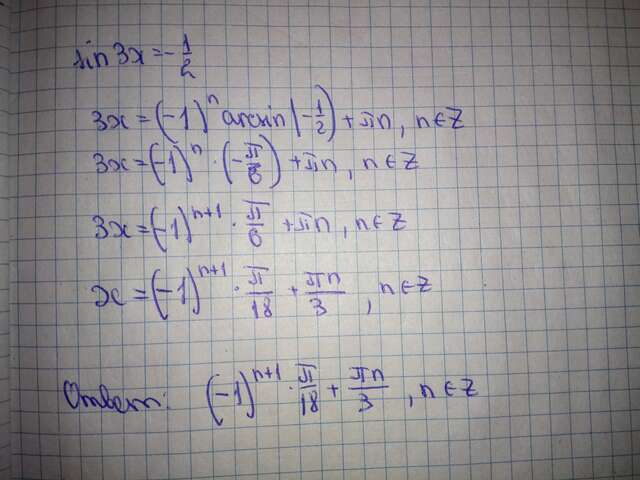 sin 3x = -1/2
3x = (-1)^n arcsin(-1/2) + πn, n ∈ Z
3x = (-1)^n · (-π/6) + πn, n ∈ Z
3x = (-1)^(n+1) · π/6 + πn, n ∈ Z
x = (-1)^(n+1) · π/18 + πn/3, n ∈ Z
Ответ: (-1)^(n+1) · π/18 + πn/3, n ∈ Z